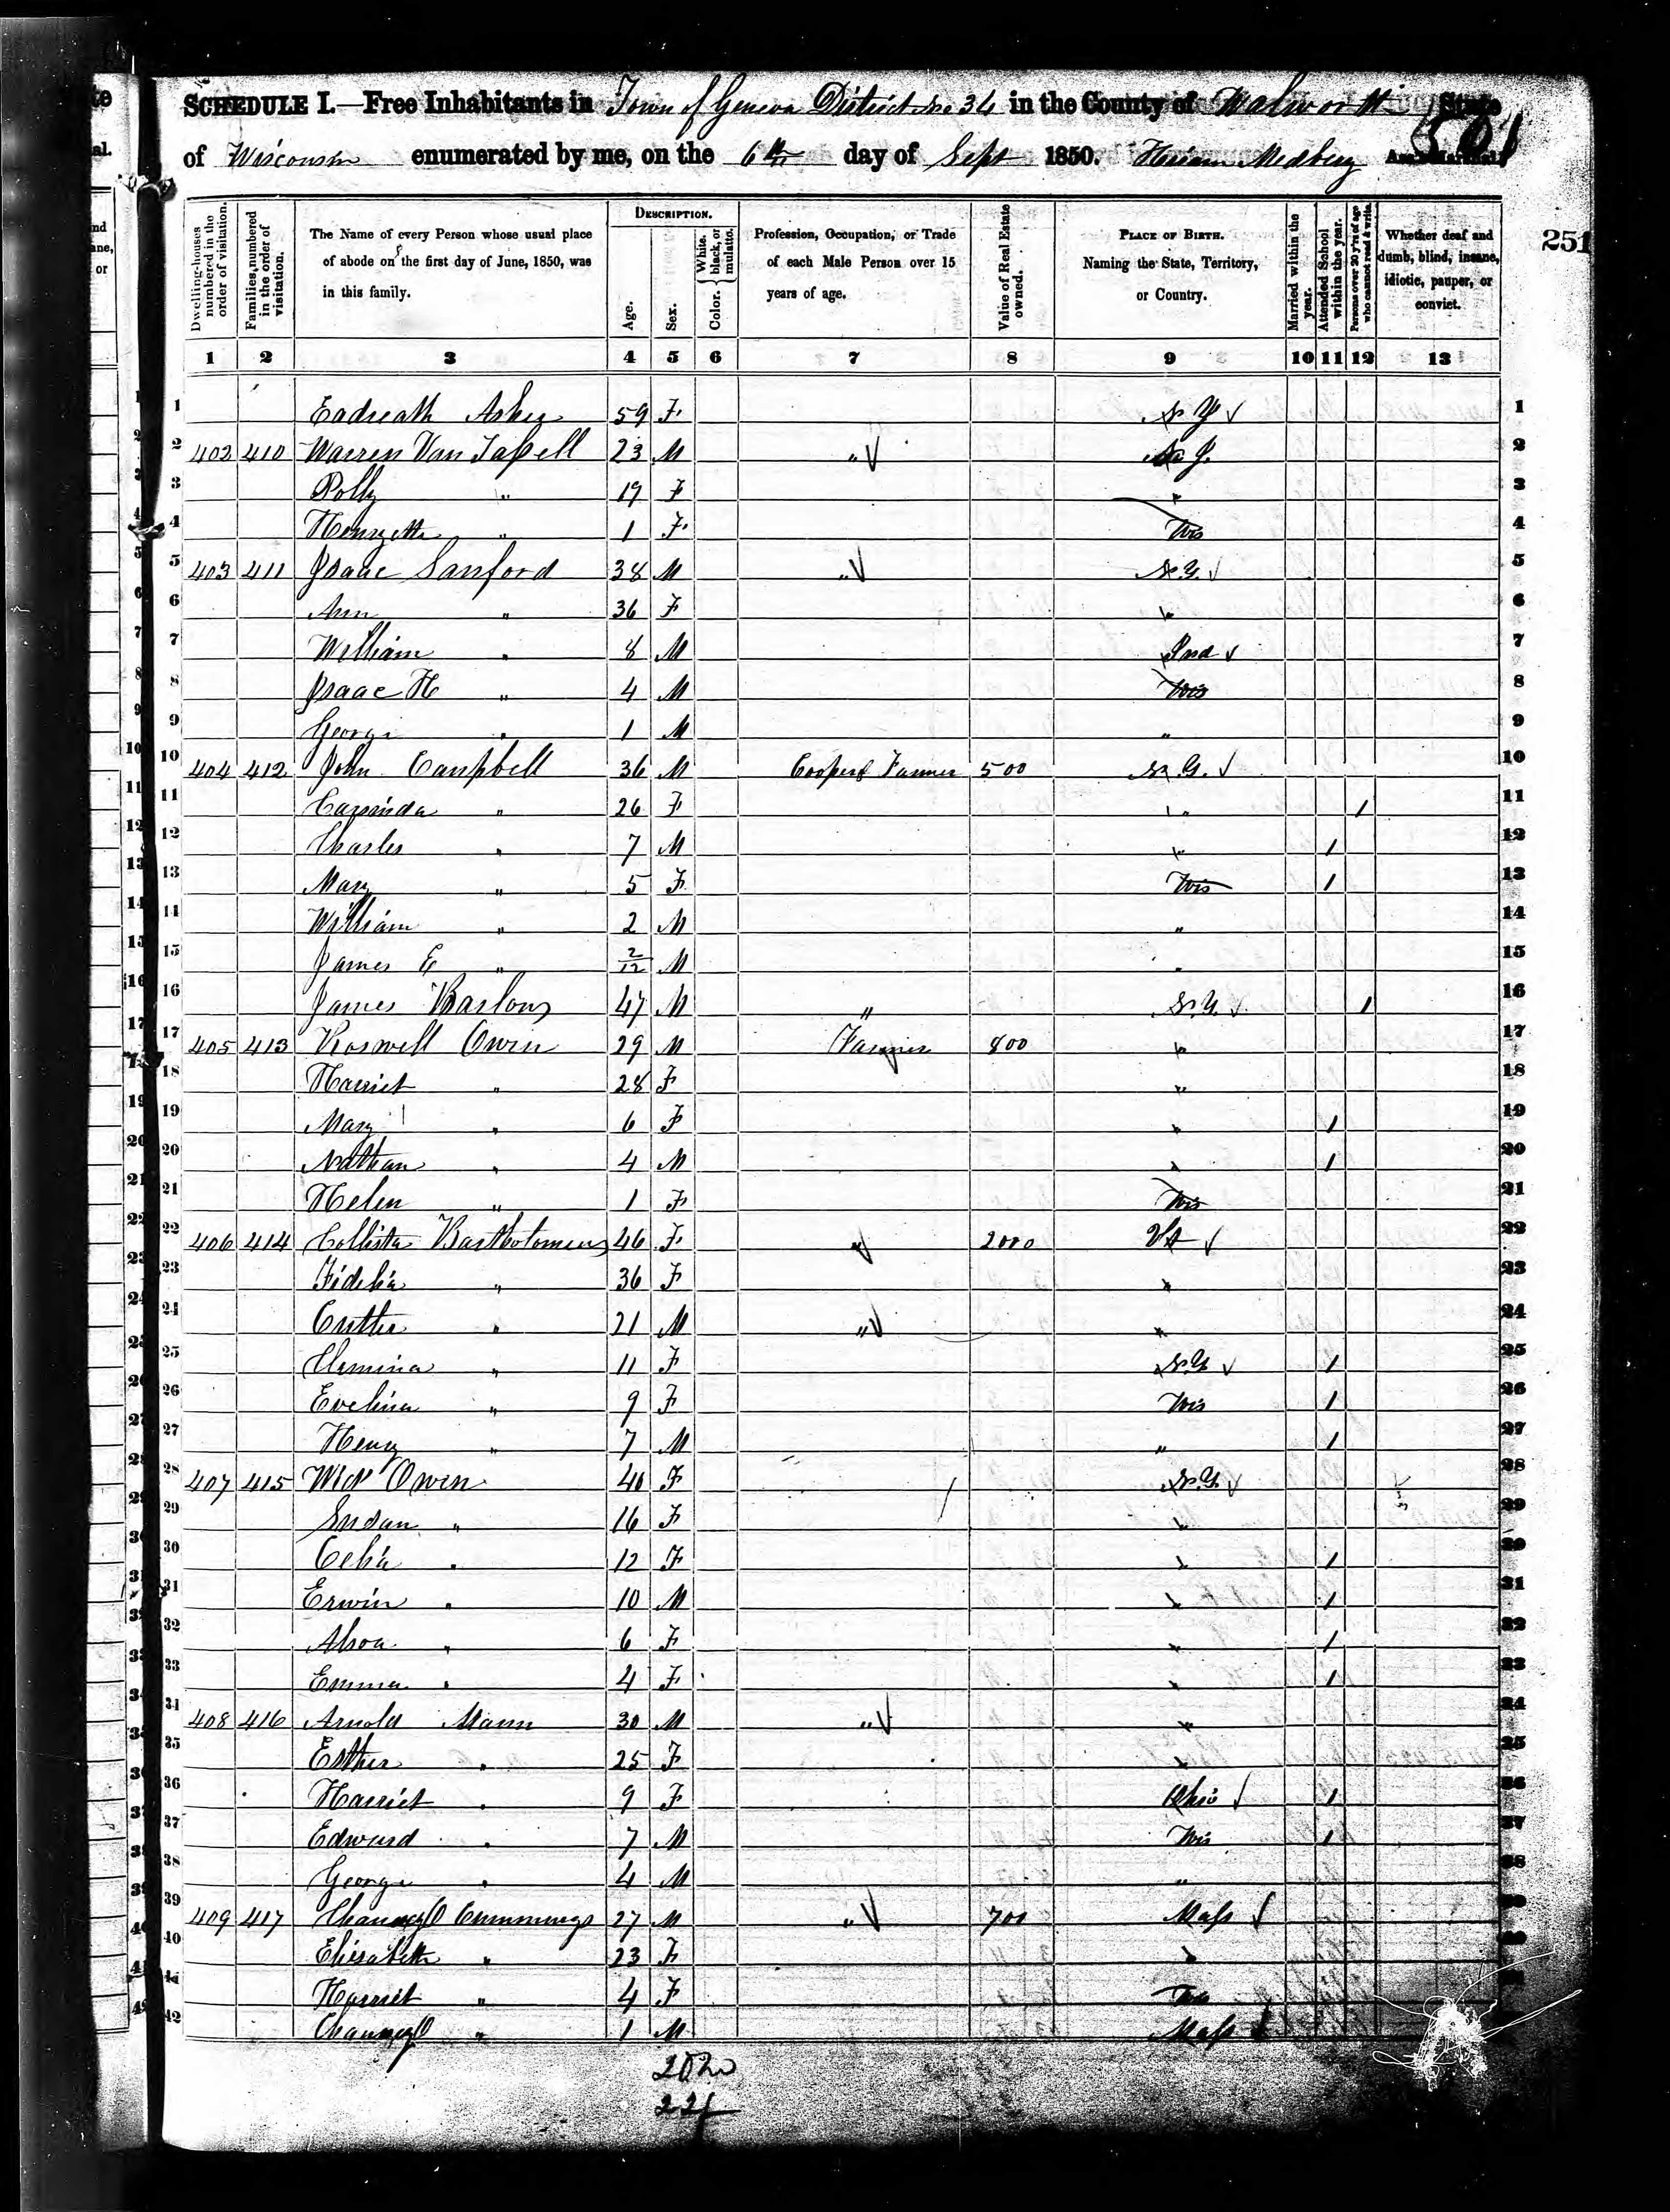 SCHEDULE I.—Free Inhabitants in Town of Geneva District No 34 in the County of Walworth State
of Wisconsin enumerated by me, on the 6th day of Sept 1850. Hiriam Medbery Ass't Marshal.
501
251
Dwelling-houses numbered in the order of visitation.
Families numbered in the order of visitation.
The Name of every Person whose usual place of abode on the first day of June, 1850, was in this family.
DESCRIPTION.
Age.
Sex.
Color. White, black, or mulatto.
Profession, Occupation, or Trade of each Male Person over 15 years of age.
Value of Real Estate owned.
PLACE OF BIRTH. Naming the State, Territory, or Country.
Married within the year.
Attended School within the year.
Persons over 20 y'rs of age who cannot read & write.
Whether deaf and dumb, blind, insane, idiotic, pauper, or convict.
1 2 3 4 5 6 7 8 9 10 11 12 13
1 59 F N Y 1
2 402 410 Warren Van Tassell 23 M " N Y. 2
3 Polly " 19 F " 3
4 " 1 F Wis 4
5 403 411 Isaac Sanford 38 M " N.Y. 5
6 Ann " 36 F " 6
7 William " 8 M Ind 7
8 Isaac H " 4 M Wis 8
9 George " 1 M " 9
10 404 412 John Campbell 36 M Cooper & Farmer 500 N.Y. 10
11 " 26 F " 1 11
12 Charles " 7 M " 1 12
13 Mary " 5 F Wis 1 13
14 William " 2 M " 14
15 James E " 2/12 M " 15
16 James Barlow 47 M " N.Y. 1 16
17 405 413 Roswell Owen 29 M Farmer 800 " 17
18 Harriet " 28 F " 18
19 Mary " 6 F " 1 19
20 Nathan " 4 M " 1 20
21 Helen " 1 F Wis 21
22 406 414 Collista Bartholomew 46 F " 2000 Vt 22
23 Fidelia " 36 F " 23
24 " 21 M " " 24
25 " 11 F N.Y. 1 25
26 Evelina " 9 F Wis 1 26
27 Henry " 7 M " 1 27
28 407 415 Wid Owen 40 F N.Y. 28
29 Susan " 16 F " 29
30 Celia " 12 F " 1 30
31 Erwin " 10 M " 1 31
32 " 6 F " 1 32
33 Emma " 4 F " 1 33
34 408 416 Arnold Mann 30 M " " 34
35 Esther " 25 F " 35
36 Harriet " 9 F Ohio 1 36
37 Edward " 7 M Wis 1 37
38 George " 4 M " 38
39 409 417 Chauncy O Cummings 27 M " 700 Mass 39
40 Elisabeth " 23 F " 40
41 Harriet " 4 F 41
42 Chauncy O " 1 M Mass 42